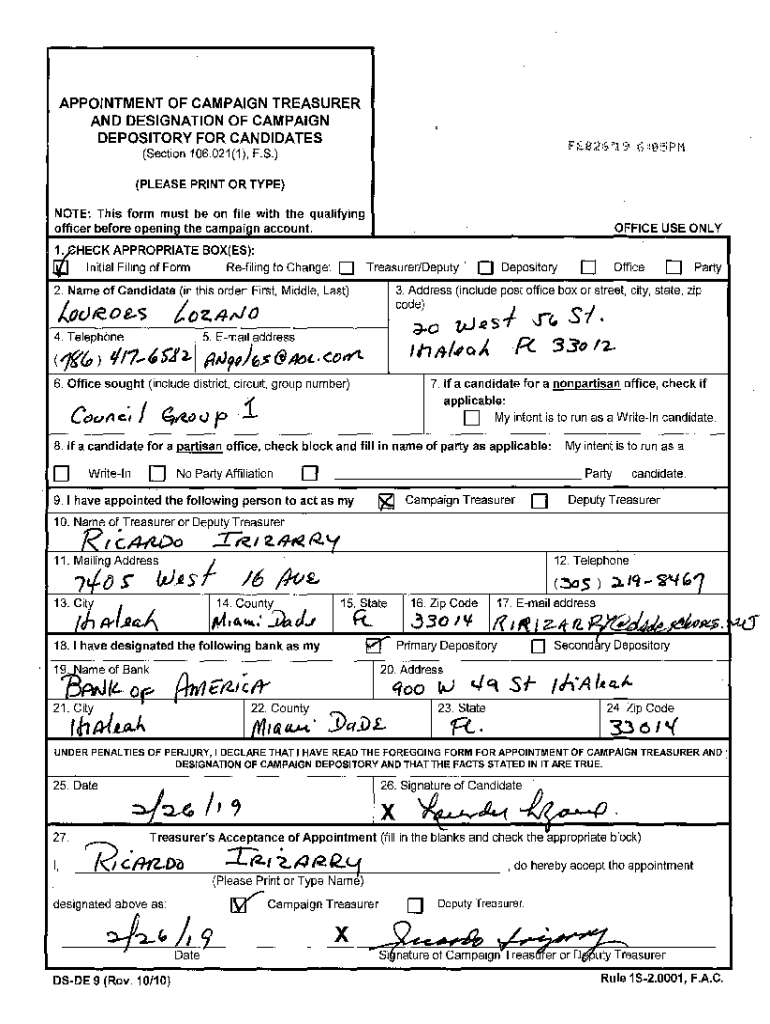 APPOINTMENT OF CAMPAIGN TREASURER
AND DESIGNATION OF CAMPAIGN
DEPOSITORY FOR CANDIDATES
(Section 106.021(1), F.S.)
(PLEASE PRINT OR TYPE)
NOTE: This form must be on file with the qualifying
officer before opening the campaign account.
FEB26'19 6:05PM
OFFICE USE ONLY
1. CHECK APPROPRIATE BOX(ES):
Initial Filing of Form Re-filing to Change: Treasurer/Deputy Depository Office Party
2. Name of Candidate (in this order: First, Middle, Last)
LOURDES LOZANO
3. Address (include post office box or street, city, state, zip
code)
20 West 56 St.
HiAleah FL 33012
4. Telephone
(786) 417-6582
5. E-mail address
@AOL.com
6. Office sought (include district, circuit, group number)
Council Group I
7. If a candidate for a nonpartisan office, check if
applicable:
My intent is to run as a Write-In candidate.
8. If a candidate for a partisan office, check block and fill in name of party as applicable: My intent is to run as a
Write-In No Party Affiliation Party candidate.
9. I have appointed the following person to act as my Campaign Treasurer Deputy Treasurer
10. Name of Treasurer or Deputy Treasurer
RICARDO IRIZARRY
11. Mailing Address
7405 West 16 Ave
12. Telephone
(305) 219-8467
13. City
HiAleah
14. County
Miami Dade
15. State
FL
16. Zip Code
33014
17. E-mail address
RIRIZARRY@dadeschools.net
18. I have designated the following bank as my Primary Depository Secondary Depository
19. Name of Bank
BANK OF AMERICA
20. Address
900 W 49 St HiAleah
21. City
HiAleah
22. County
Miami DADE
23. State
FL.
24. Zip Code
33014
UNDER PENALTIES OF PERJURY, I DECLARE THAT I HAVE READ THE FOREGOING FORM FOR APPOINTMENT OF CAMPAIGN TREASURER AND
DESIGNATION OF CAMPAIGN DEPOSITORY AND THAT THE FACTS STATED IN IT ARE TRUE.
25. Date
2/26/19
26. Signature of Candidate
X Lourdes Lozano.
27. Treasurer's Acceptance of Appointment (fill in the blanks and check the appropriate block)
I, RICARDO IRIZARRY , do hereby accept the appointment
(Please Print or Type Name)
designated above as: Campaign Treasurer Deputy Treasurer.
2/26/19 X Ricardo Irizarry
Date Signature of Campaign Treasurer or Deputy Treasurer
DS-DE 9 (Rev. 10/10) Rule 1S-2.0001, F.A.C.